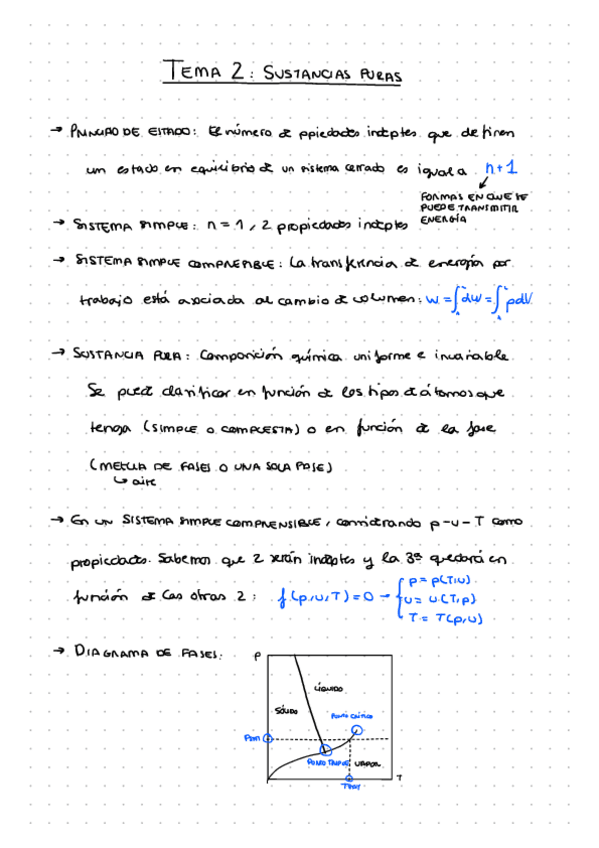 TEMA 2: SUSTANCIAS PURAS
→ PRINCIPIO DE ESTADO: El número de ppiedades indptes que definen
un estado en equilibrio de un sistema cerrado es igual a n+1
FORMAS EN QUE SE
PUEDE TRANSMITIR
ENERGÍA
→ SISTEMA SIMPLE: n = 1, 2 propiedades indptes
→ SISTEMA SIMPLE COMPRENSIBLE: La transferencia de energía por
trabajo está asociada al cambio de volumen: W = ∫dW = ∫pdV
→ SUSTANCIA PURA: Composición química uniforme e invariable.
Se puede clasificar en función de los tipos de átomos que
tenga (SIMPLE O COMPUESTA) o en función de la fase
(MEZCLA DE FASES O UNA SOLA FASE)
↳ aire
→ En un SISTEMA SIMPLE COMPRENSIBLE, considerando p-v-T como
propiedades. Sabemos que 2 serán indptes y la 3ª quedará en
función de las otras 2: f(p,v,T)=0 → { p = p(T,v)
v = v(T,p)
T = T(p,v)
→ DIAGRAMA DE FASES:
P
LÍQUIDO
SÓLIDO
PUNTO CRÍTICO
PUNTO TRIPLE
VAPOR
T